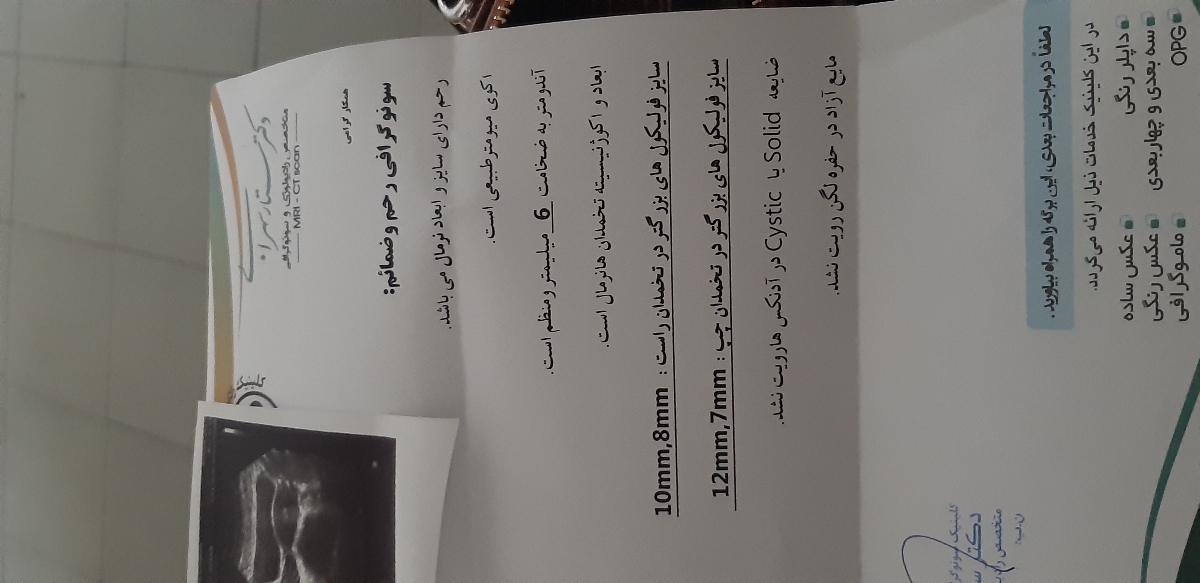 متخصص رادیولوژی و سونوگرافی
MRI - CT scan
همکار گرامی
سونوگرافی رحم و ضمائم:
رحم دارای سایز و ابعاد نرمال می باشد.
اکوی میومتر طبیعی است.
آندومتر به ضخامت 6 میلیمتر و منظم است.
ابعاد و اکوژنیسیته تخمدان ها نرمال است.
سایز فولیکول های بزرگتر در تخمدان راست : 10mm,8mm
سایز فولیکول های بزرگتر در تخمدان چپ : 12mm,7mm
ضایعه Solid یا Cystic در آدنکس ها رویت نشد.
مایع آزاد در حفره لگن رویت نشد.
لطفاً در مراجعات بعدی، این برگه را همراه بیاورید.
در این کلینیک خدمات ذیل ارائه می‌گردد.
داپلر رنگی
عکس ساده
سه بعدی و چهاربعدی
عکس رنگی
OPG
ماموگرافی